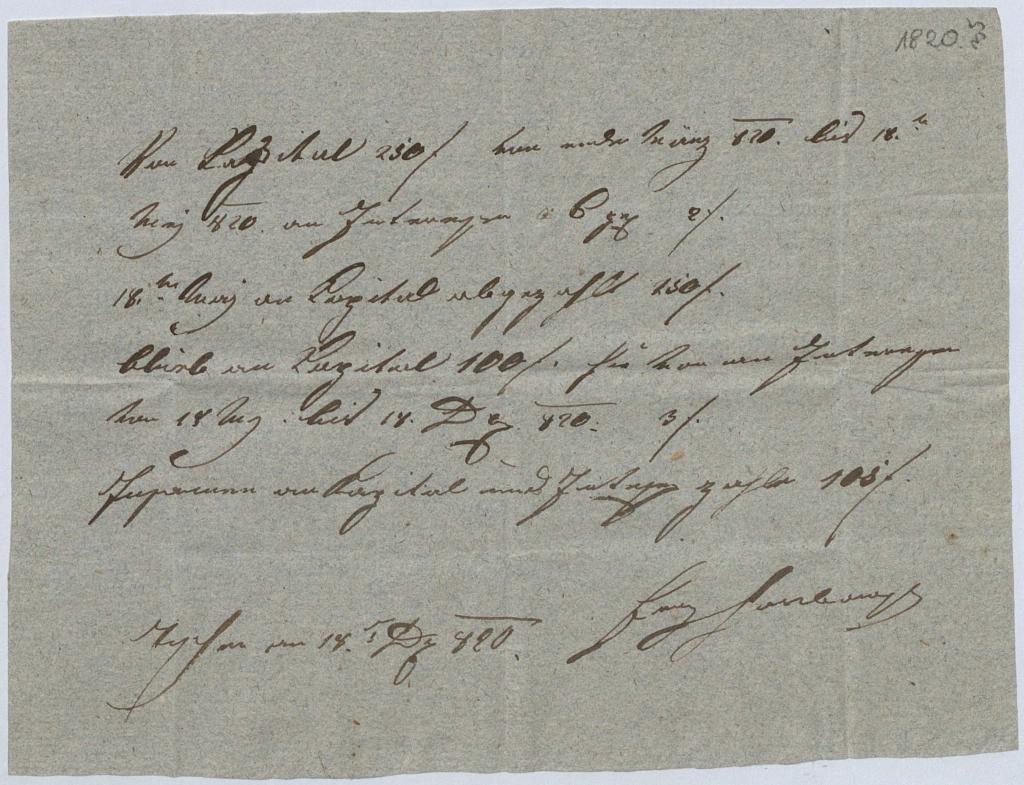 1820.
Von Kapital 250 f von ende März 820. bis 18.tn
May 820. an Interessen à 6 2 f.
18.tn May an Kapital abgezahlt 150 f.
blieb an Kapital 100 f. von an Interessen
von 18 May bis 18. Dz 820. 3 f.
Zusammen an Kapital und Intessen zahle 105 f.
am 18. Dz 820. Franz